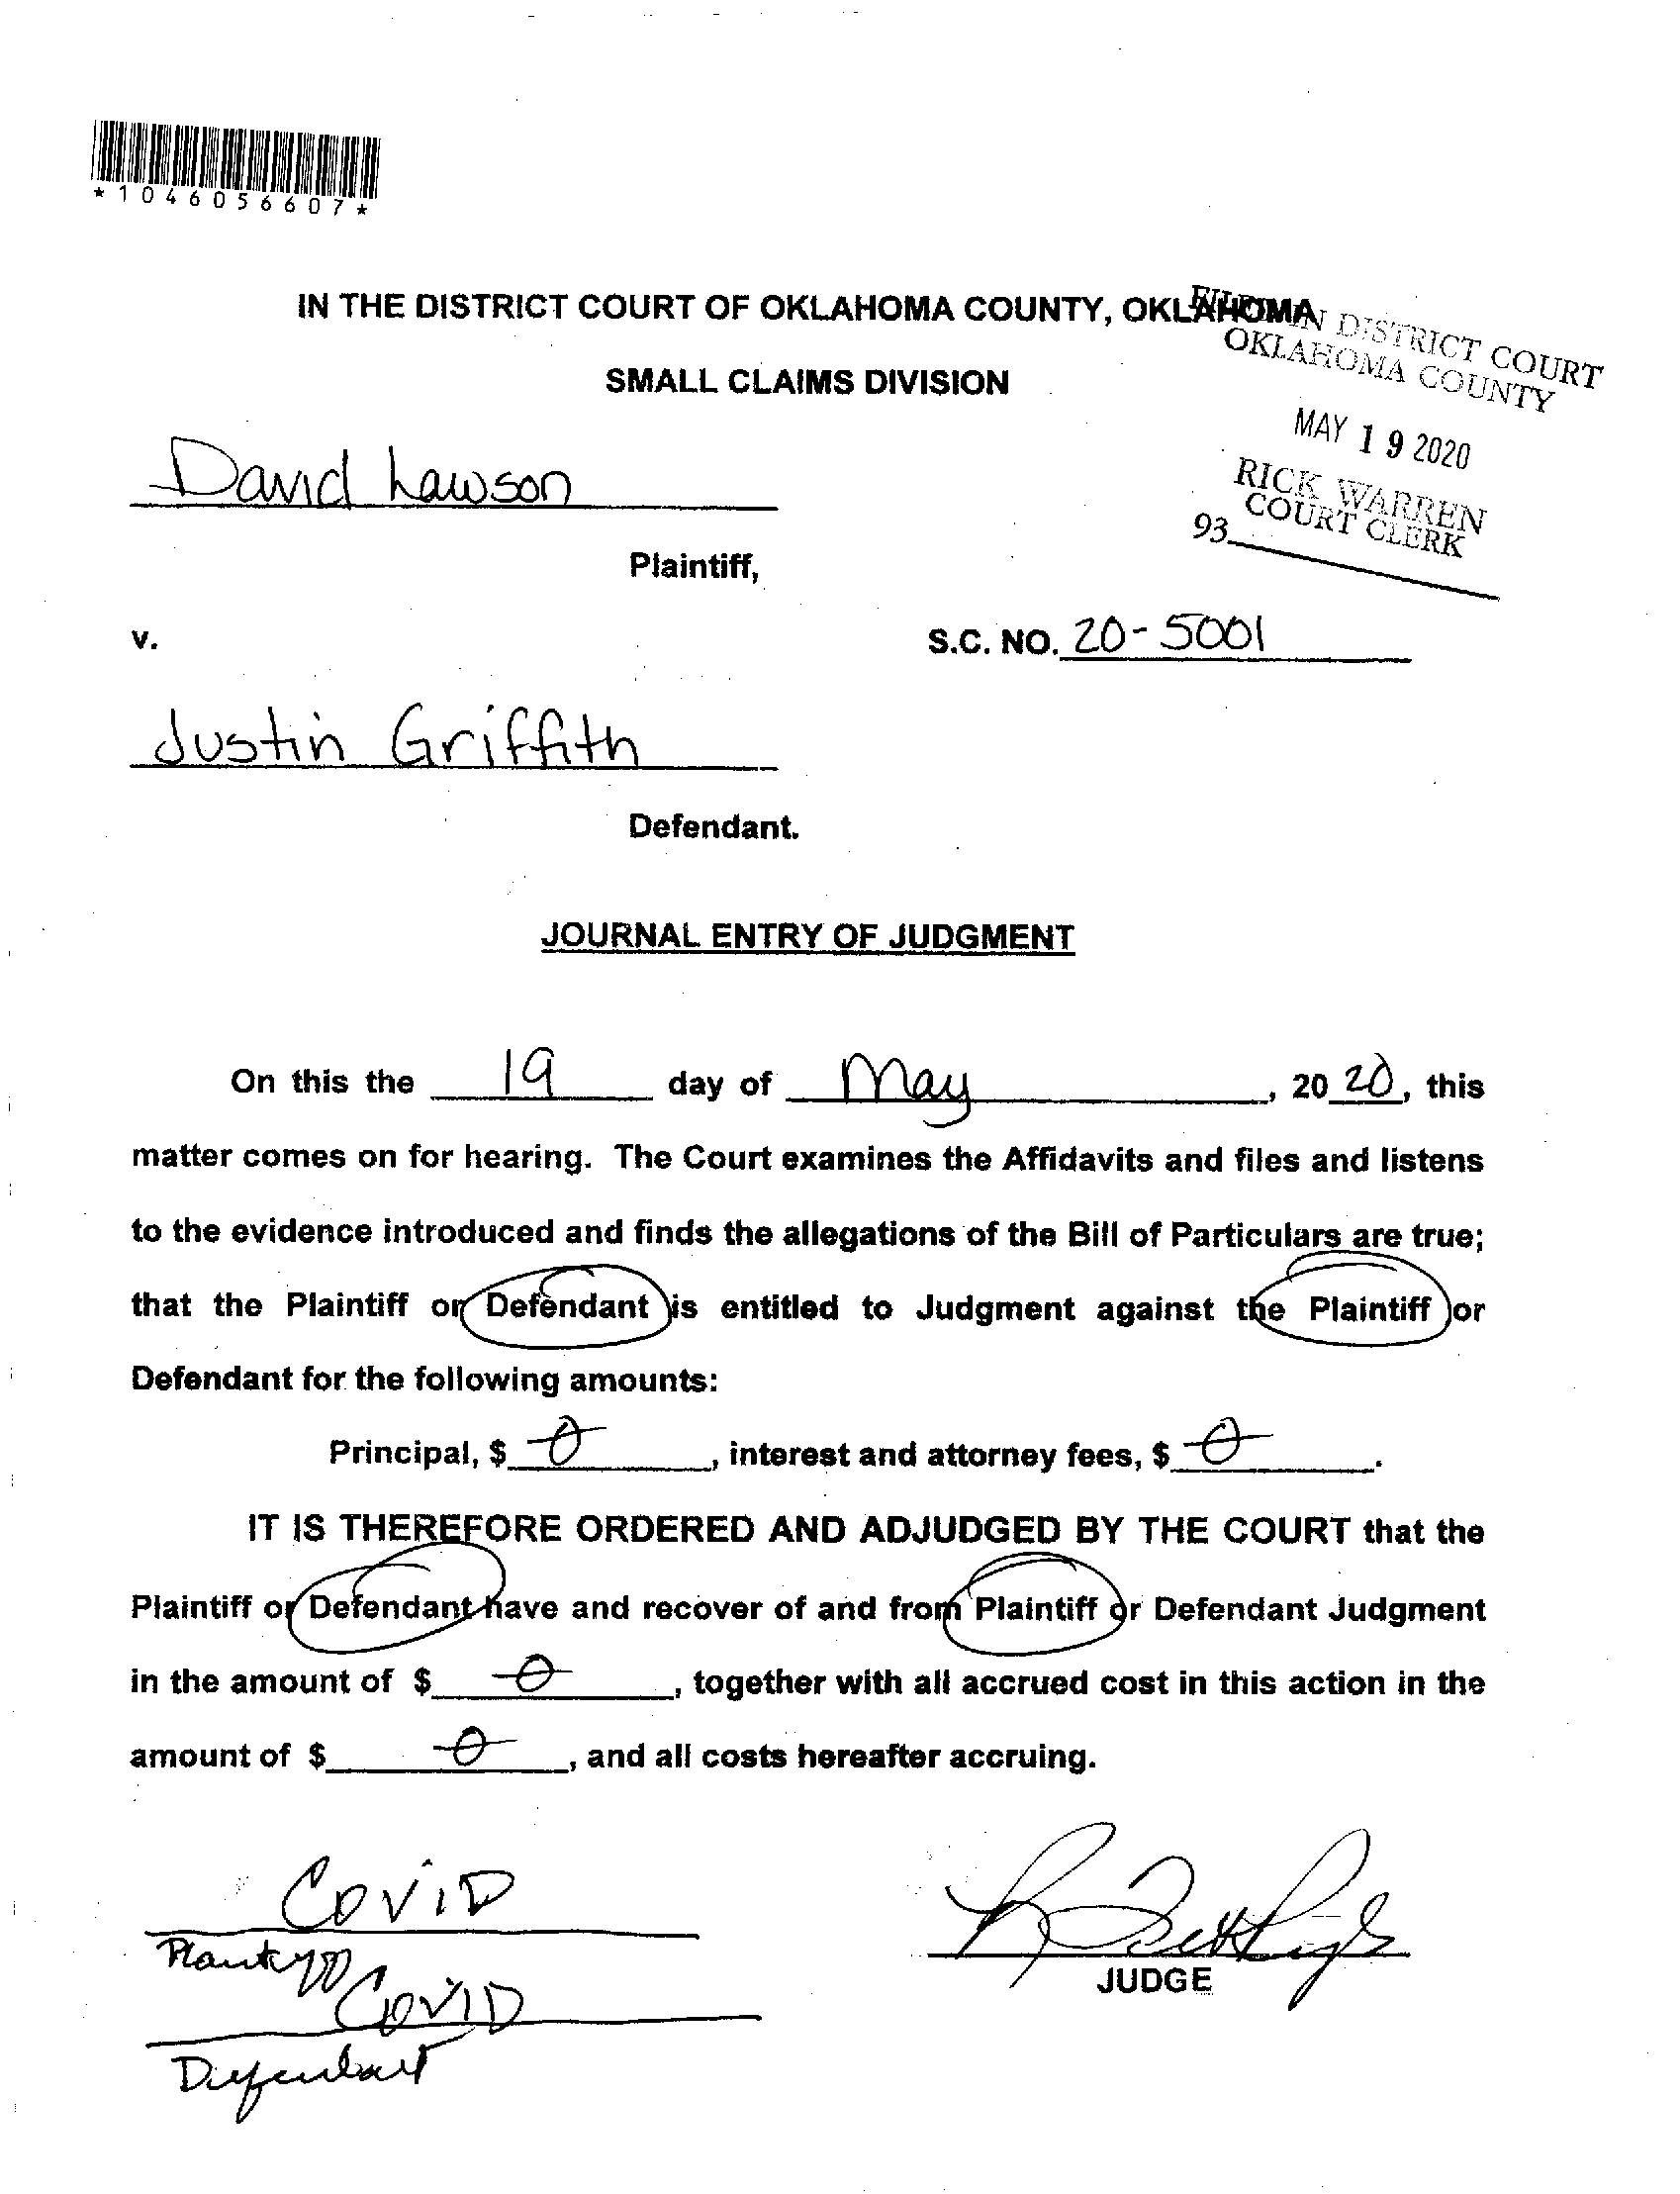 *1046056607*
IN THE DISTRICT COURT OF OKLAHOMA COUNTY, OKLAHOMA
FILED IN DISTRICT COURT
OKLAHOMA COUNTY
SMALL CLAIMS DIVISION
MAY 19 2020
RICK WARREN
COURT CLERK
93
David Lawson
Plaintiff,
v.
S.C. NO. 20-5001
Justin Griffith
Defendant.
JOURNAL ENTRY OF JUDGMENT
On this the 19 day of May, 2020, this
matter comes on for hearing. The Court examines the Affidavits and files and listens
to the evidence introduced and finds the allegations of the Bill of Particulars are true;
that the Plaintiff or Defendant is entitled to Judgment against the Plaintiff or
Defendant for the following amounts:
Principal, $ 0, interest and attorney fees, $ 0.
IT IS THEREFORE ORDERED AND ADJUDGED BY THE COURT that the
Plaintiff or Defendant have and recover of and from Plaintiff or Defendant Judgment
in the amount of $ 0, together with all accrued cost in this action in the
amount of $ 0, and all costs hereafter accruing.
COVID
Plaintiff
JUDGE
COVID
Defendant